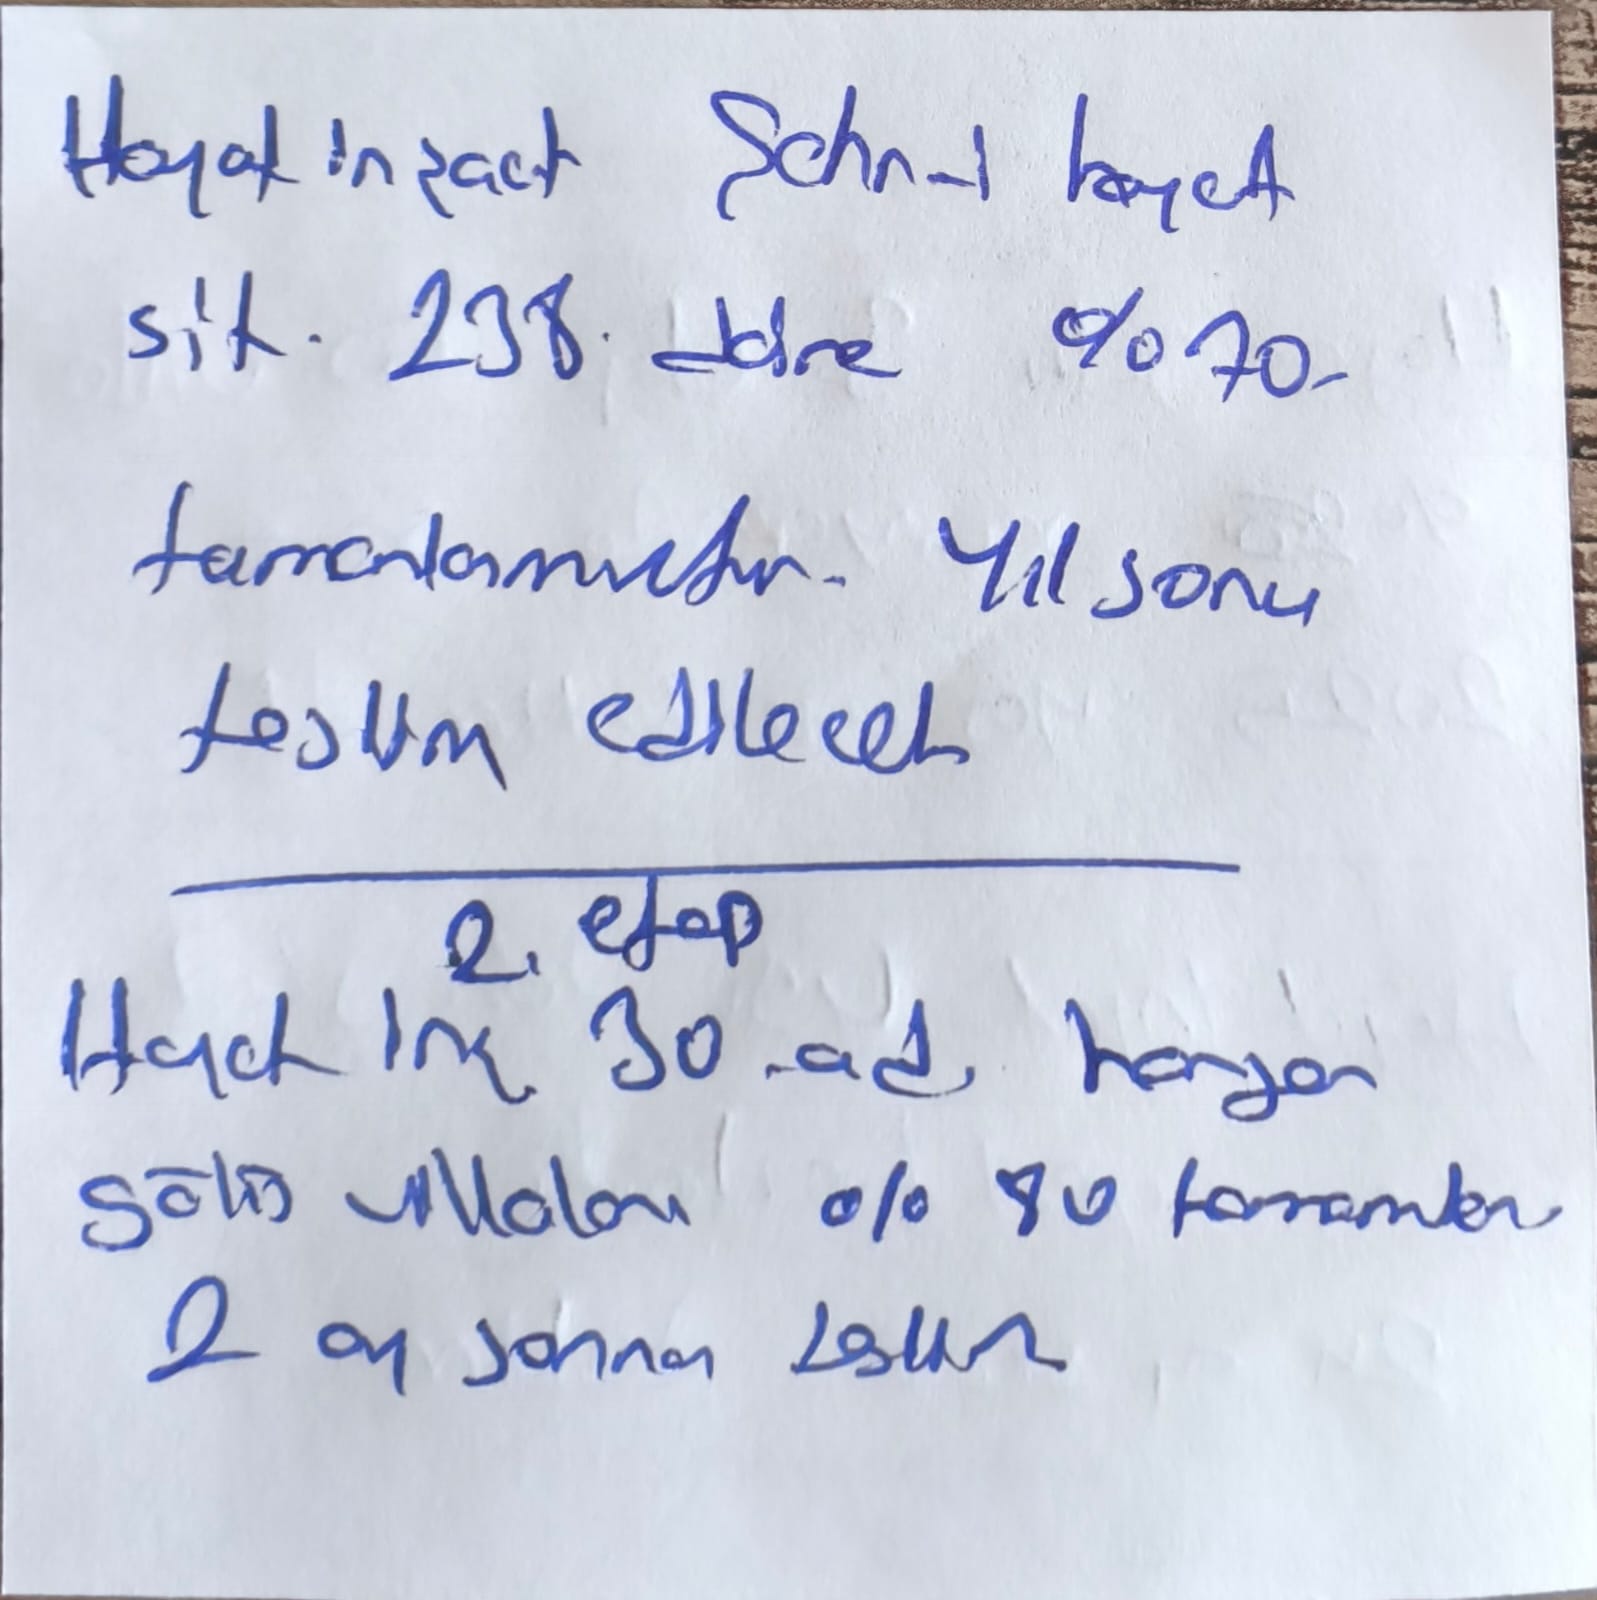 Hayat inşaat Şehr-i hayat
sit. 238. daire %70-
tamamlanmıştır. Yıl sonu
teslim edilecek
2. etap
Hayat inş 30 ad.
göl villaları %80 tamamlan
2 ay sonra teslim